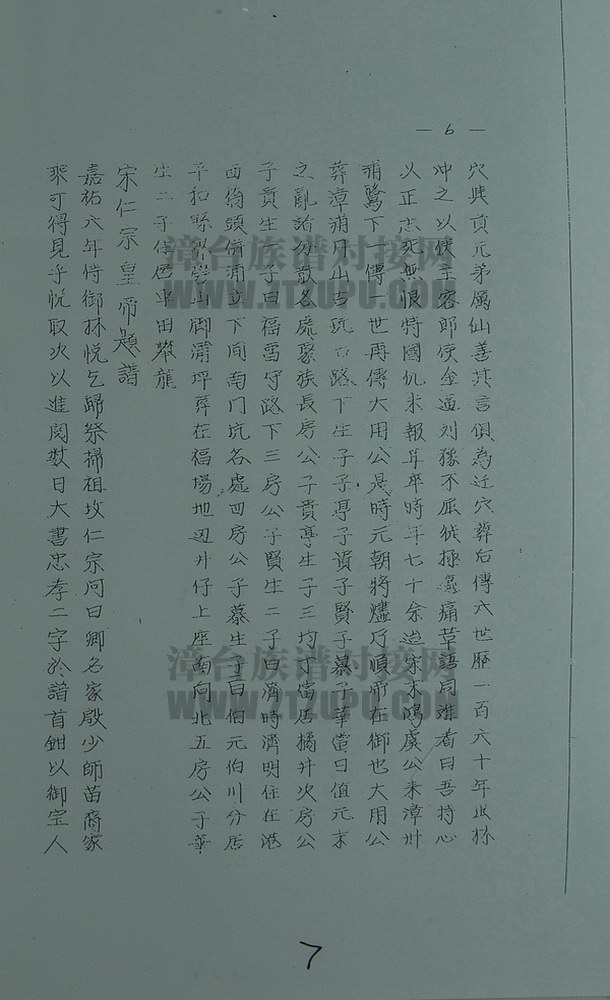 — 6 —
穴與貢元弟屬仙善其言俱為迁穴葬后傳六世歷一百六十年此林
冲之以使主客郎使金通刘豫不屈徙極痛草語同难者曰吾持心
以正忠死無恨特國仇未報耳卒時年七十余迨宋末鴻虞公来漳州
浦鷺下一傳一世再傳大用公是時元朝將燼厅順帝在御也大用公
葬漳浦月山古坑口路下生子子亭子資子賢子慕子華當日值元末
之亂諸幼散各處聚族長房公子賁亭生子三均丁當居橘井次房公
子賁生一子曰福雷守路下三房公子賢生二子曰濟時濟明住在港
西倚頭併浦立下间南门坑各處四房公子慕生子曰伯元伯川分居
平和縣山脚溝坪葬在福場地迎井仔上座南向北五房公子華
生二子住居半田攀龍
宋仁宗皇帝題譜
嘉祐六年侍御林悅乞歸祭掃祖坟仁宗问曰卿名家殷少師苗裔家
眾可得見乎悅取次以進阅数日大書忠孝二字於譜首鉗以御宝人
7
漳台族谱对接网
WWW.ZTZUPU.COM
漳台族谱对接网
WWW.ZTZUPU.COM